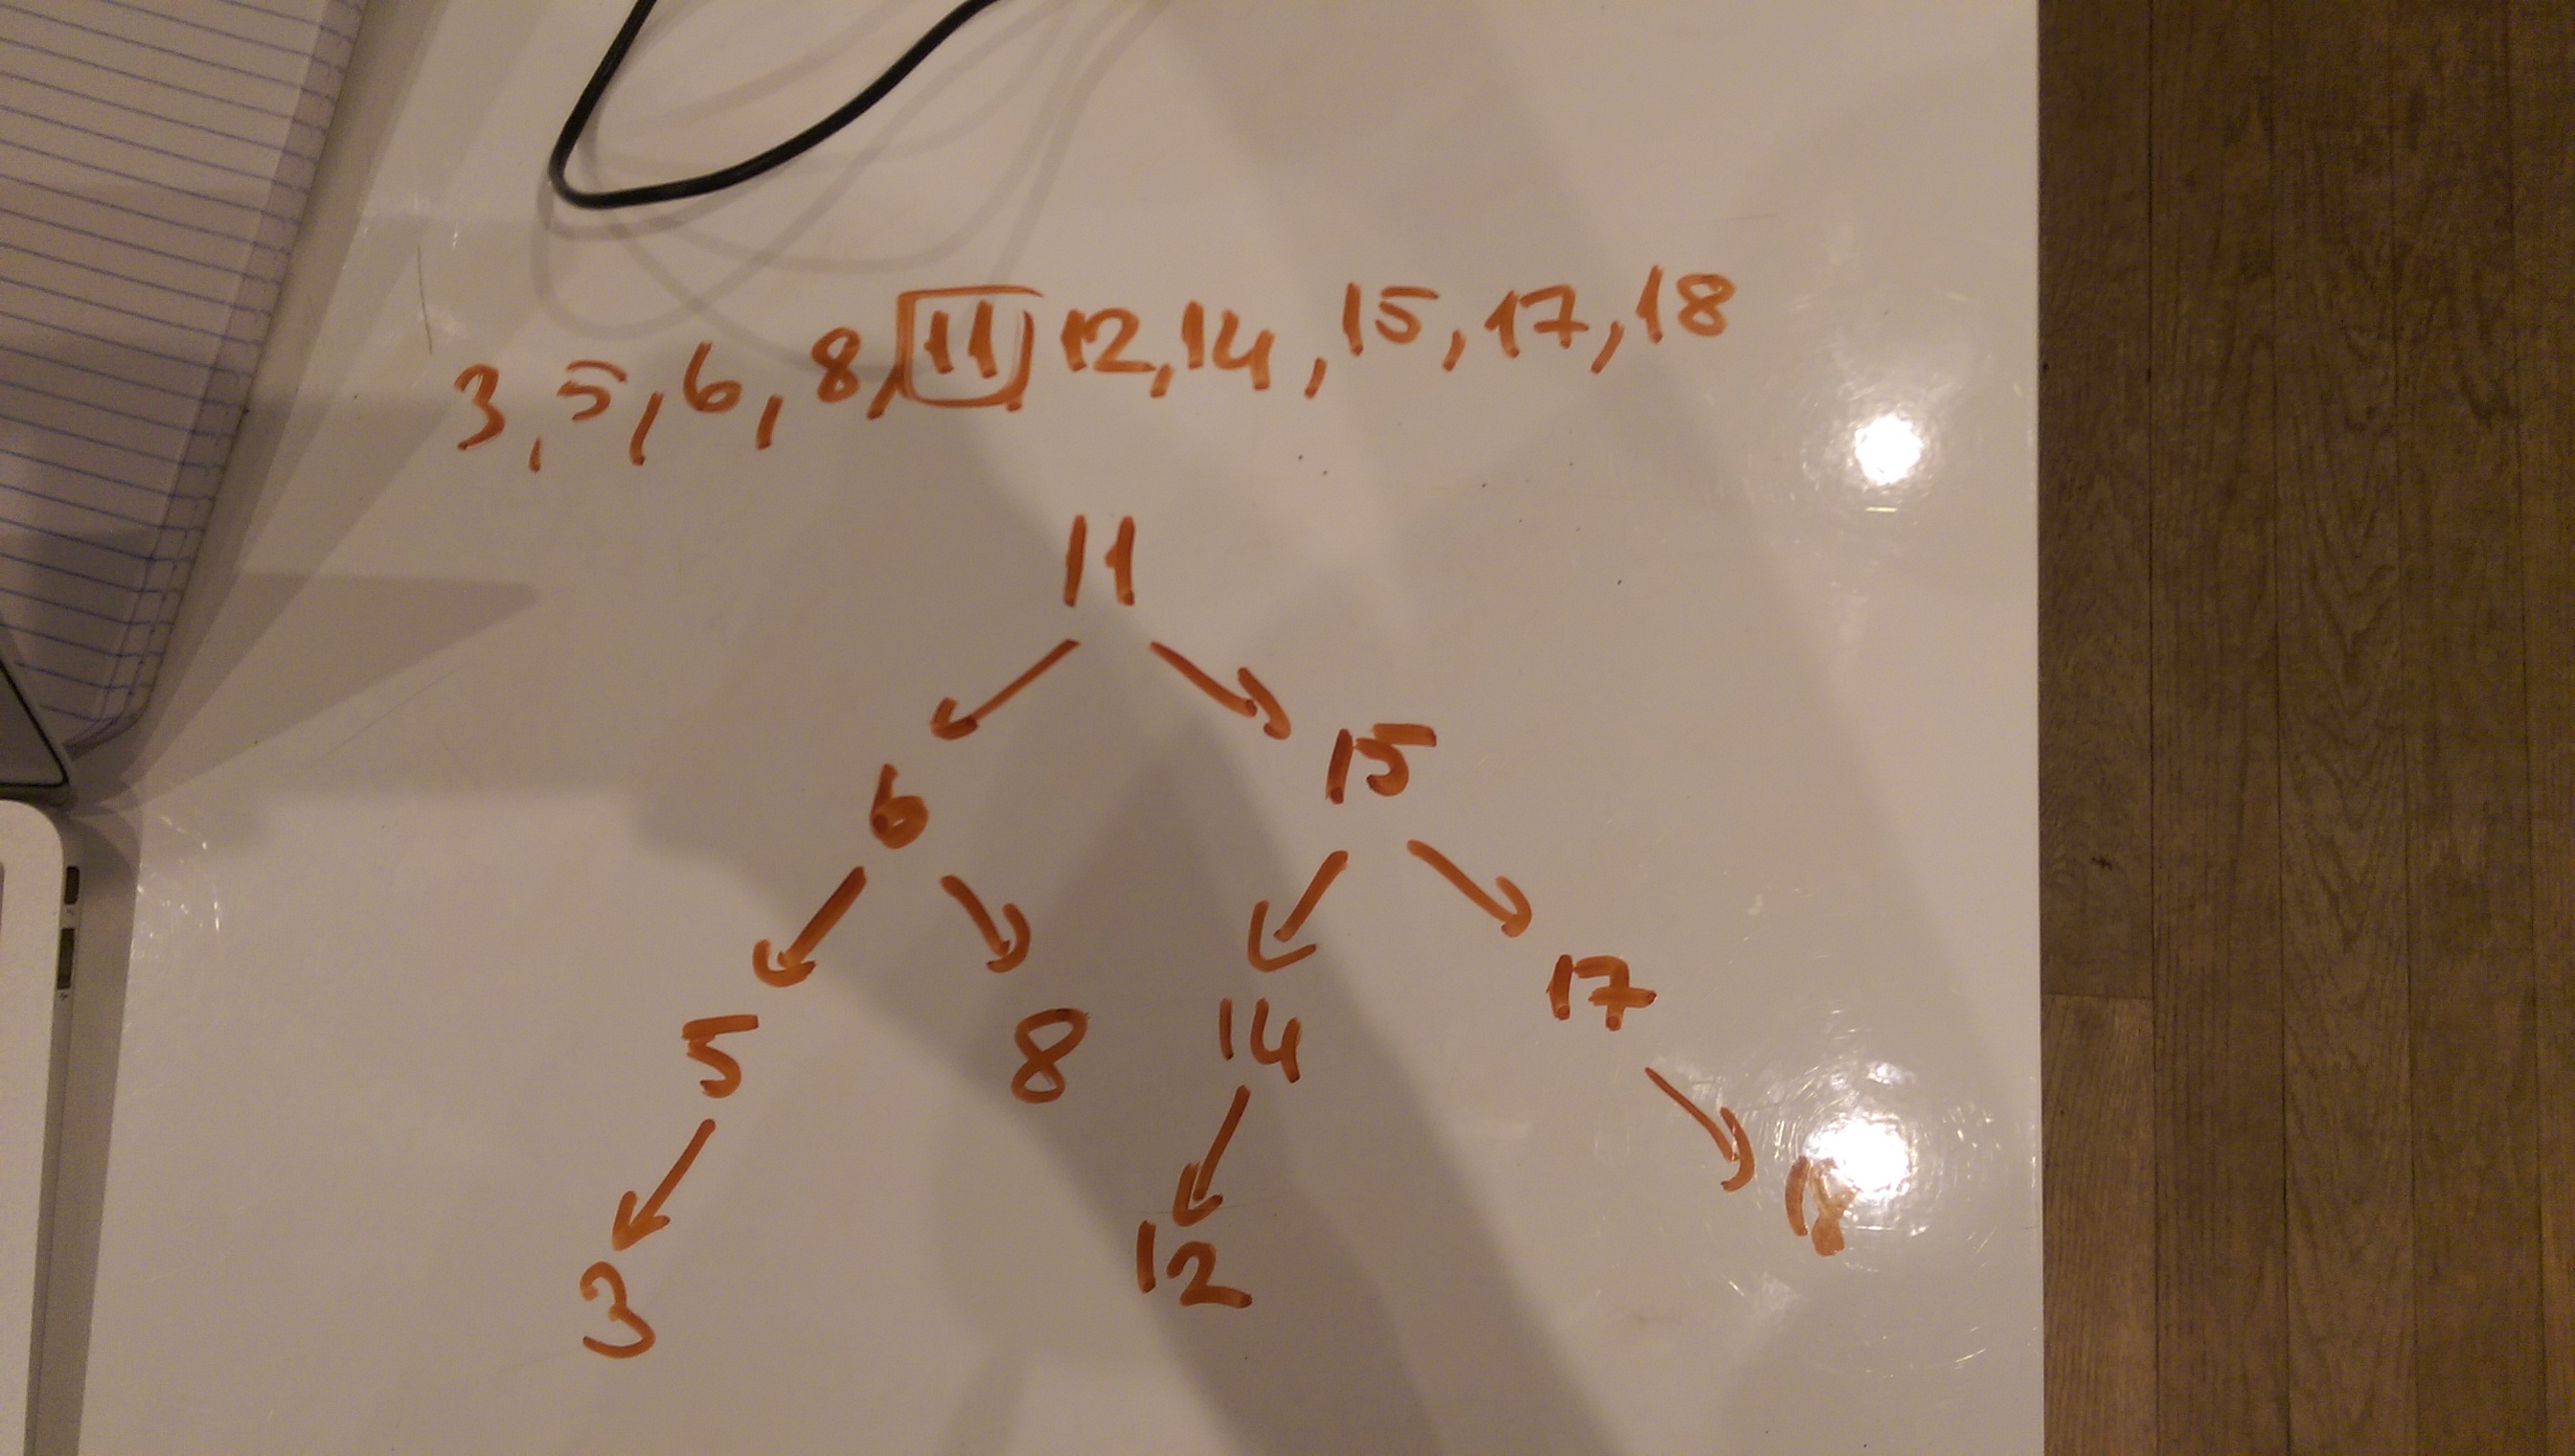 3, 5, 6, 8, 11, 12, 14, 15, 17, 18
11
6 15
5 8 14 17
3 12 18